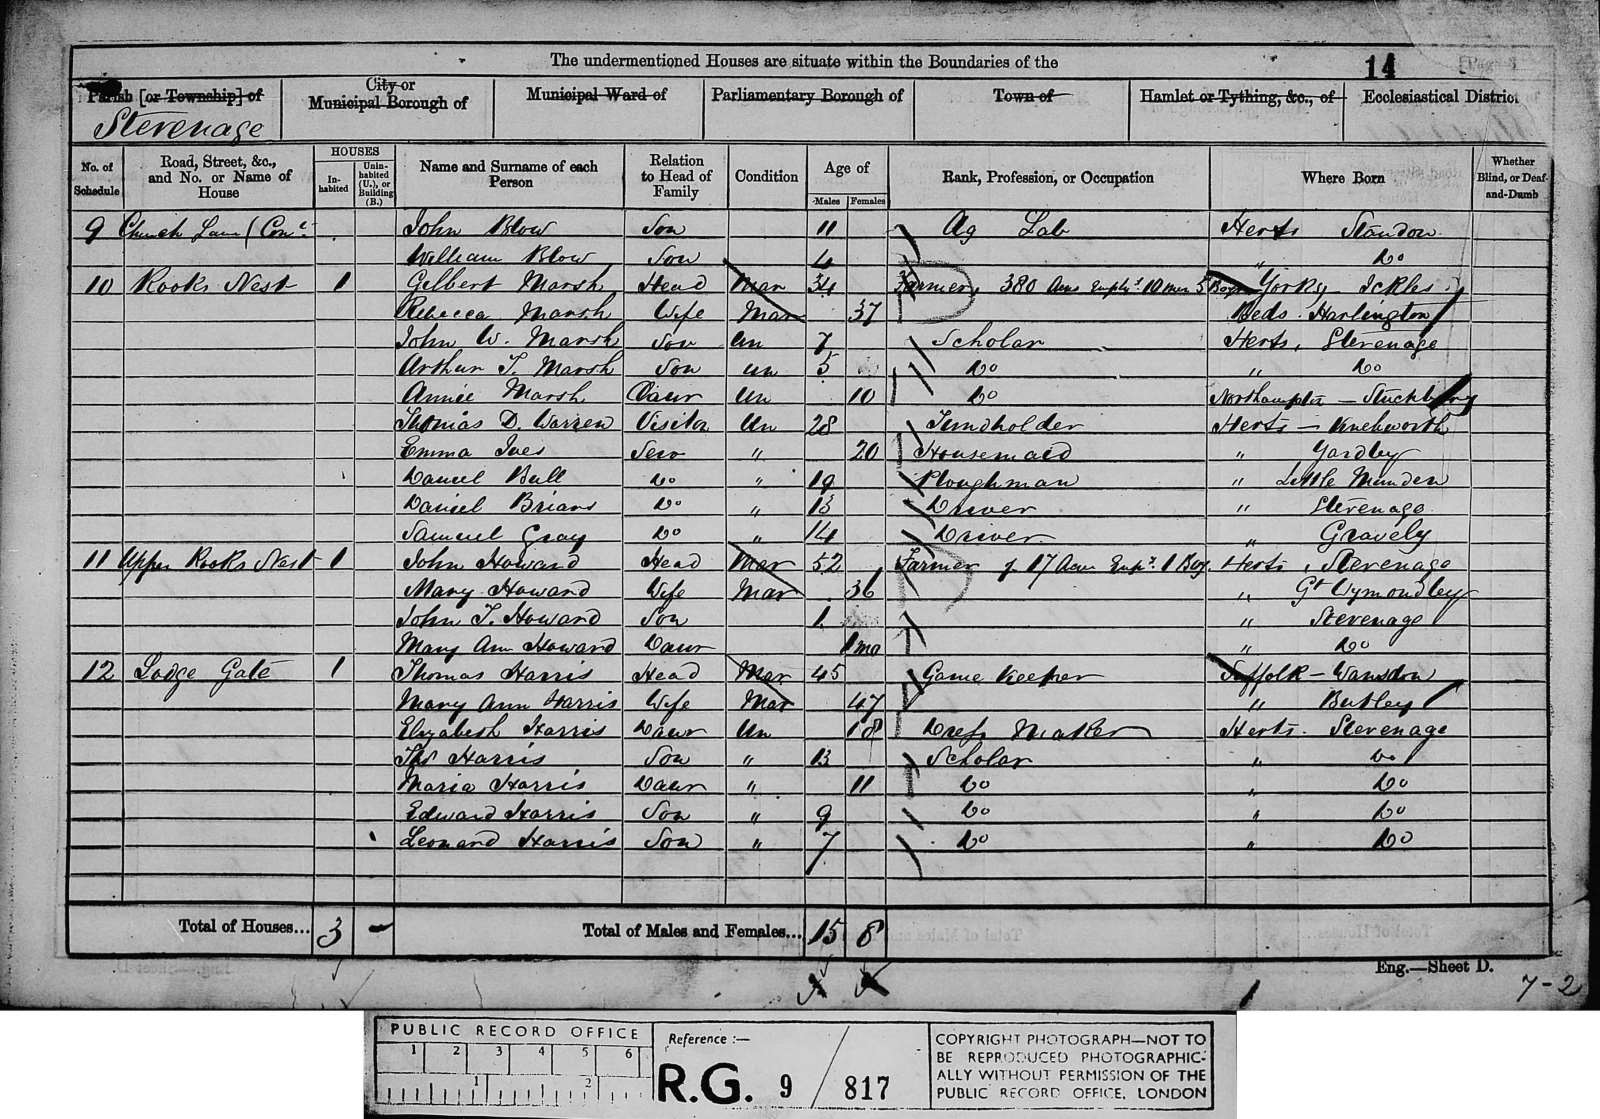 The undermentioned Houses are situate within the Boundaries of the
14
[Page 5
Parish [or Township] of
City or Municipal Borough of
Municipal Ward of
Parliamentary Borough of
Town of
Hamlet or Tything, &c., of
Ecclesiastical District
Stevenage
No. of Schedule
Road, Street, &c., and No. or Name of House
HOUSES
In-habited
Unin-habited (U.), or Building (B.)
Name and Surname of each Person
Relation to Head of Family
Condition
Age of
Males
Females
Rank, Profession, or Occupation
Where Born
Whether Blind, or Deaf-and-Dumb
9 Church Lane (Con^d John Blow Son 11 Ag Lab Herts Standon
William Blow Son 4 " Do
10 Rooks Nest 1 Gilbert Marsh Head Mar 34 Farmer, 380 Acres Empls 10 men 5 Boys Yorks
Rebecca Marsh Wife Mar 37 Beds. Harlington
John W. Marsh Son Un 7 Scholar Herts, Stevenage
Arthur T. Marsh Son Un 5 Do " Do
Annie Marsh Daur Un 10 Do Northampton –
Thomas D. Warren Visitor Un 28 Fundholder Herts – Knebworth
Emma Ives Serv " 20 Housemaid " Yardley
Daniel Bull Do " 19 Ploughman " Little Munden
Daniel Brians Do " 13 Driver " Stevenage
Samuel Gray Do " 14 Driver " Gravely
11 Upper Rooks Nest 1 John Howard Head Mar 52 Farmer of 17 Acres Empg 1 Boy. Herts, Stevenage
Mary Howard Wife Mar 36 " Gt Wymondley
John T. Howard Son 1 " Stevenage
Mary Ann Howard Daur 1 mo " Do
12 Lodge Gate 1 Thomas Harris Head Mar 45 Game Keeper Suffolk –
Mary Ann Harris Wife Mar 47 " Butley
Elizabeth Harris Daur Un 18 Dress Maker Herts. Stevenage
Thos Harris Son " 13 Scholar " Do
Maria Harris Daur " 11 Do " Do
Edward Harris Son " 9 Do " Do
Leonard Harris Son " 7 Do " Do
Total of Houses... 3 –
Total of Males and Females... 15 8
Eng.—Sheet D.
7-2
PUBLIC RECORD OFFICE
1 2 3 4 5 6
1 2
Reference :—
R.G. 9 / 817
COPYRIGHT PHOTOGRAPH—NOT TO
BE REPRODUCED PHOTOGRAPHIC-
ALLY WITHOUT PERMISSION OF THE
PUBLIC RECORD OFFICE, LONDON